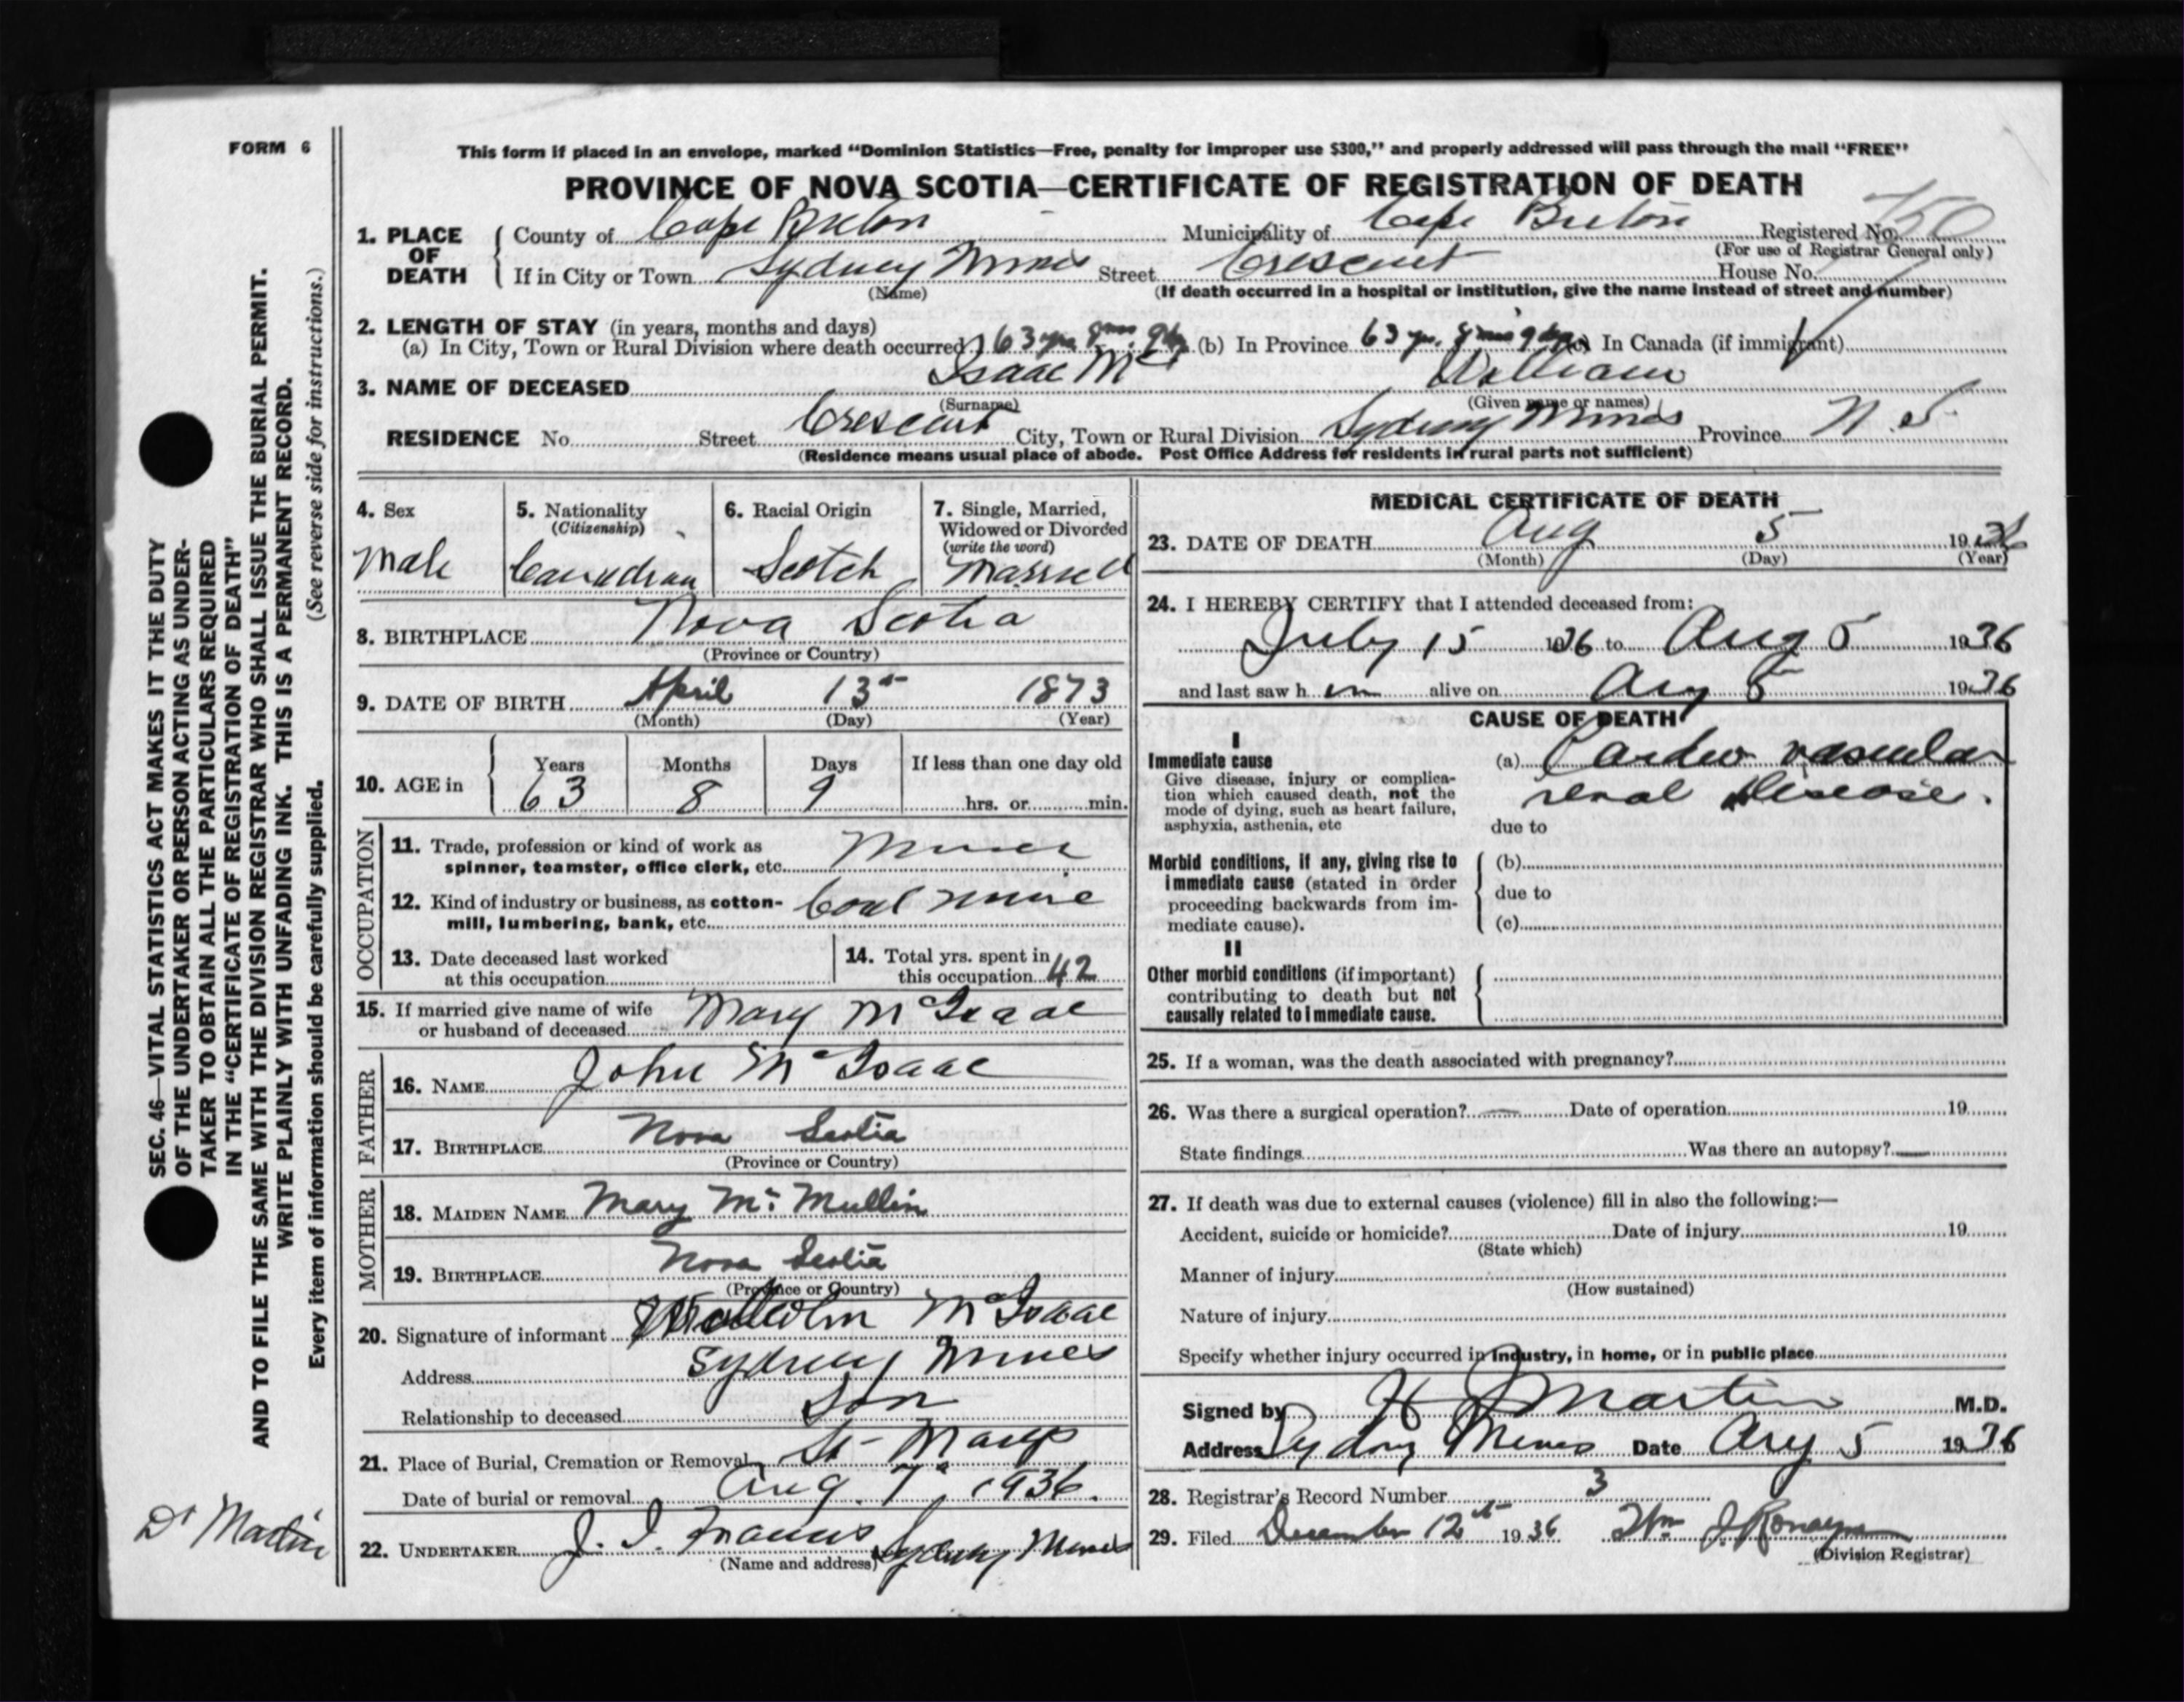 FORM 6
This form if placed in an envelope, marked “Dominion Statistics—Free, penalty for improper use $300,” and properly addressed will pass through the mail “FREE”
PROVINCE OF NOVA SCOTIA—CERTIFICATE OF REGISTRATION OF DEATH
1. PLACE OF DEATH { County of Cape Breton Municipality of Cape Breton Registered No. 750
(For use of Registrar General only)
If in City or Town Sydney Mines Street Crescent House No.
(Name) (If death occurred in a hospital or institution, give the name instead of street and number)
2. LENGTH OF STAY (in years, months and days)
(a) In City, Town or Rural Division where death occurred 63 yrs 8 mos. 9 dys (b) In Province 63 yr. 8 mos 9 dys (c) In Canada (if immigrant)
3. NAME OF DECEASED Isaac Mc William
(Surname) (Given name or names)
RESIDENCE No. Street Crescent City, Town or Rural Division Sydney Mines Province N.S.
(Residence means usual place of abode. Post Office Address for residents in rural parts not sufficient)
4. Sex
Male
5. Nationality
(Citizenship)
Canadian
6. Racial Origin
Scotch
7. Single, Married,
Widowed or Divorced
(write the word)
Married
8. BIRTHPLACE Nova Scotia
(Province or Country)
9. DATE OF BIRTH April 13th 1873
(Month) (Day) (Year)
10. AGE in { Years Months Days If less than one day old
63 8 9 hrs. or min.
OCCUPATION
11. Trade, profession or kind of work as
spinner, teamster, office clerk, etc. Miner
12. Kind of industry or business, as cotton-
mill, lumbering, bank, etc. Coal mine
13. Date deceased last worked
at this occupation
14. Total yrs. spent in
this occupation 42
15. If married give name of wife
or husband of deceased Mary McIsaac
FATHER
16. NAME John McIsaac
17. BIRTHPLACE Nova Scotia
(Province or Country)
MOTHER
18. MAIDEN NAME Mary Mc Mullin
19. BIRTHPLACE Nova Scotia
(Province or Country)
20. Signature of informant Malcolm McIsaac
Address Sydney Mines
Relationship to deceased Son
21. Place of Burial, Cremation or Removal St Marys
Date of burial or removal Aug. 7, 1936.
22. UNDERTAKER J. J. Francis Sydney Mines
(Name and address)
MEDICAL CERTIFICATE OF DEATH
23. DATE OF DEATH Aug 5 1936
(Month) (Day) (Year)
24. I HEREBY CERTIFY that I attended deceased from:
July 15 1936 to Aug 5 1936
and last saw h im alive on Aug 5 1936
CAUSE OF DEATH
I
Immediate cause
Give disease, injury or complica-
tion which caused death, not the
mode of dying, such as heart failure,
asphyxia, asthenia, etc
(a) Cardio vascular
renal disease.
due to
Morbid conditions, if any, giving rise to
immediate cause (stated in order
proceeding backwards from im-
mediate cause).
(b)
due to
(c)
II
Other morbid conditions (if important)
contributing to death but not
causally related to immediate cause.
25. If a woman, was the death associated with pregnancy?
26. Was there a surgical operation? — Date of operation 19
State findings Was there an autopsy? —
27. If death was due to external causes (violence) fill in also the following:—
Accident, suicide or homicide? Date of injury 19
(State which)
Manner of injury
(How sustained)
Nature of injury
Specify whether injury occurred in industry, in home, or in public place
Signed by H J Martin M.D.
Address Sydney Mines Date Aug 5 1936
28. Registrar's Record Number 3
29. Filed December 12th 1936 Wm J. Ronayne
(Division Registrar)
SEC. 46—VITAL STATISTICS ACT MAKES IT THE DUTY
OF THE UNDERTAKER OR PERSON ACTING AS UNDER-
TAKER TO OBTAIN ALL THE PARTICULARS REQUIRED
IN THE “CERTIFICATE OF REGISTRATION OF DEATH”
AND TO FILE THE SAME WITH THE DIVISION REGISTRAR WHO SHALL ISSUE THE BURIAL PERMIT.
WRITE PLAINLY WITH UNFADING INK. THIS IS A PERMANENT RECORD.
Every item of information should be carefully supplied. (See reverse side for instructions.)
Dr Martin